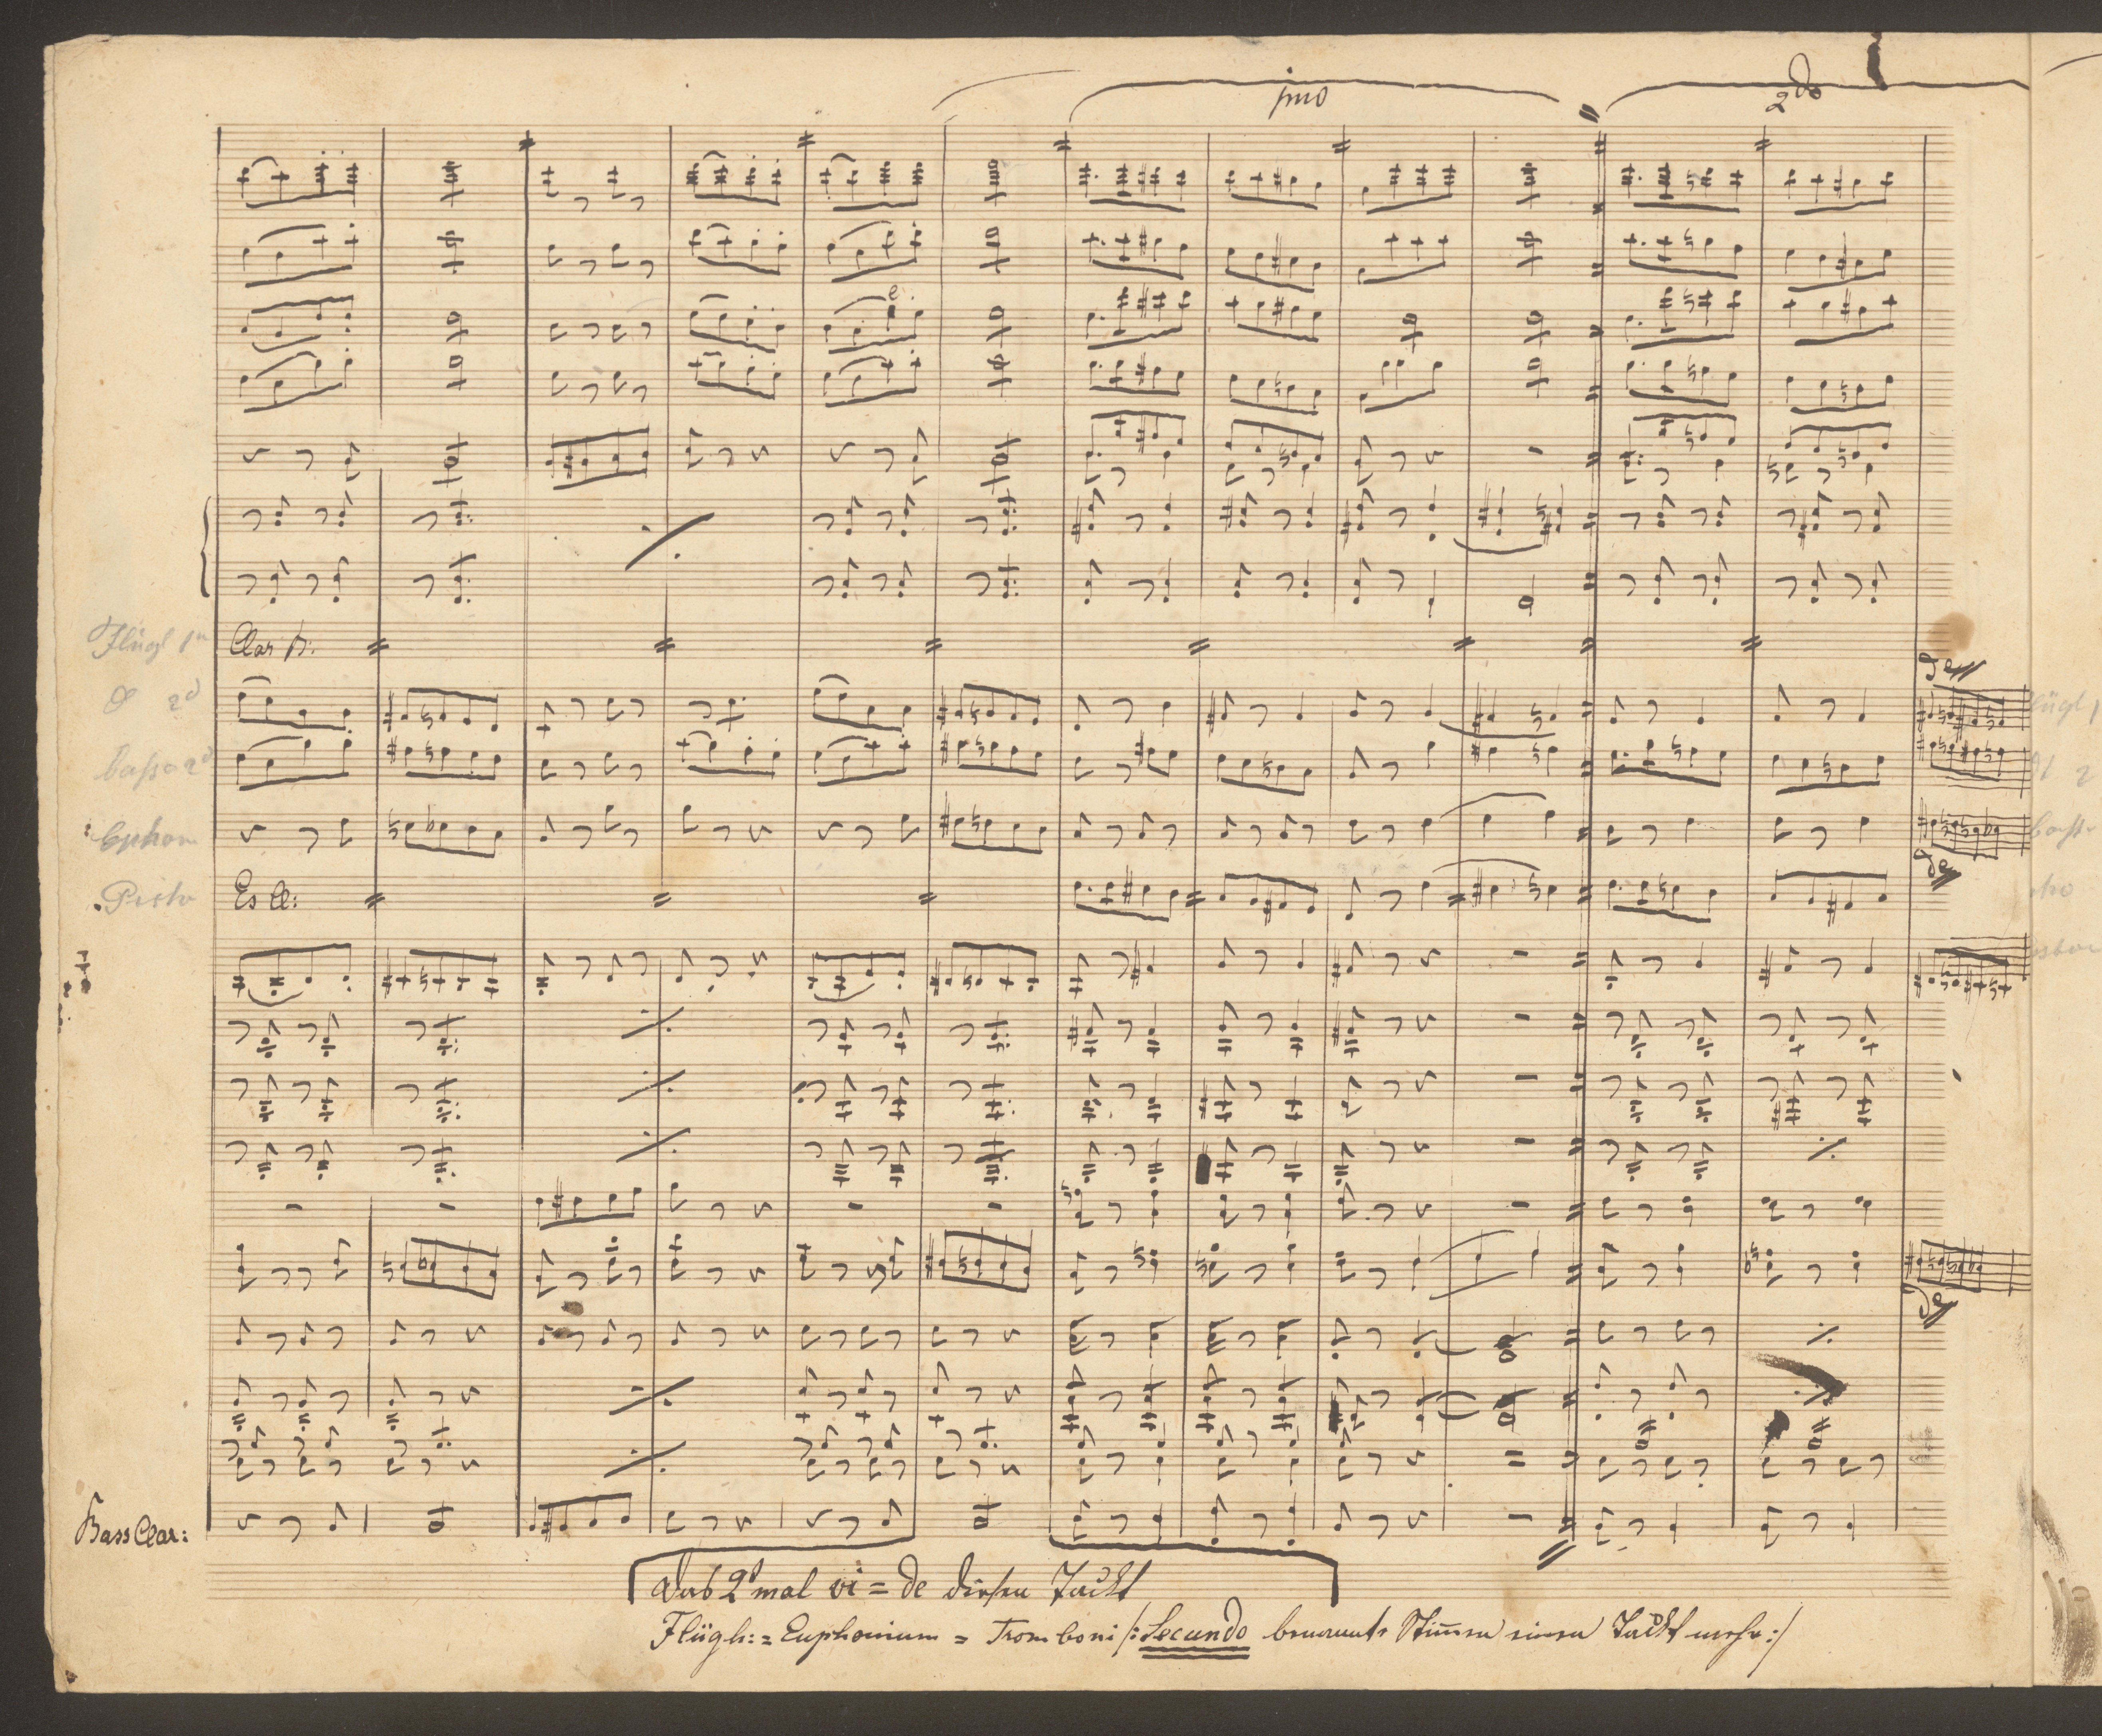 jmo
2do
Flügl 1
Clar 1:
2d
basso 2d
Euphon
Pisto
Es Cl:
Bass Clar:
das 2t mal vi = de diesen Tackt
Flügh: = Euphonium = Tromboni /: Secundo benannte Stimen einen Tackt mehr :/